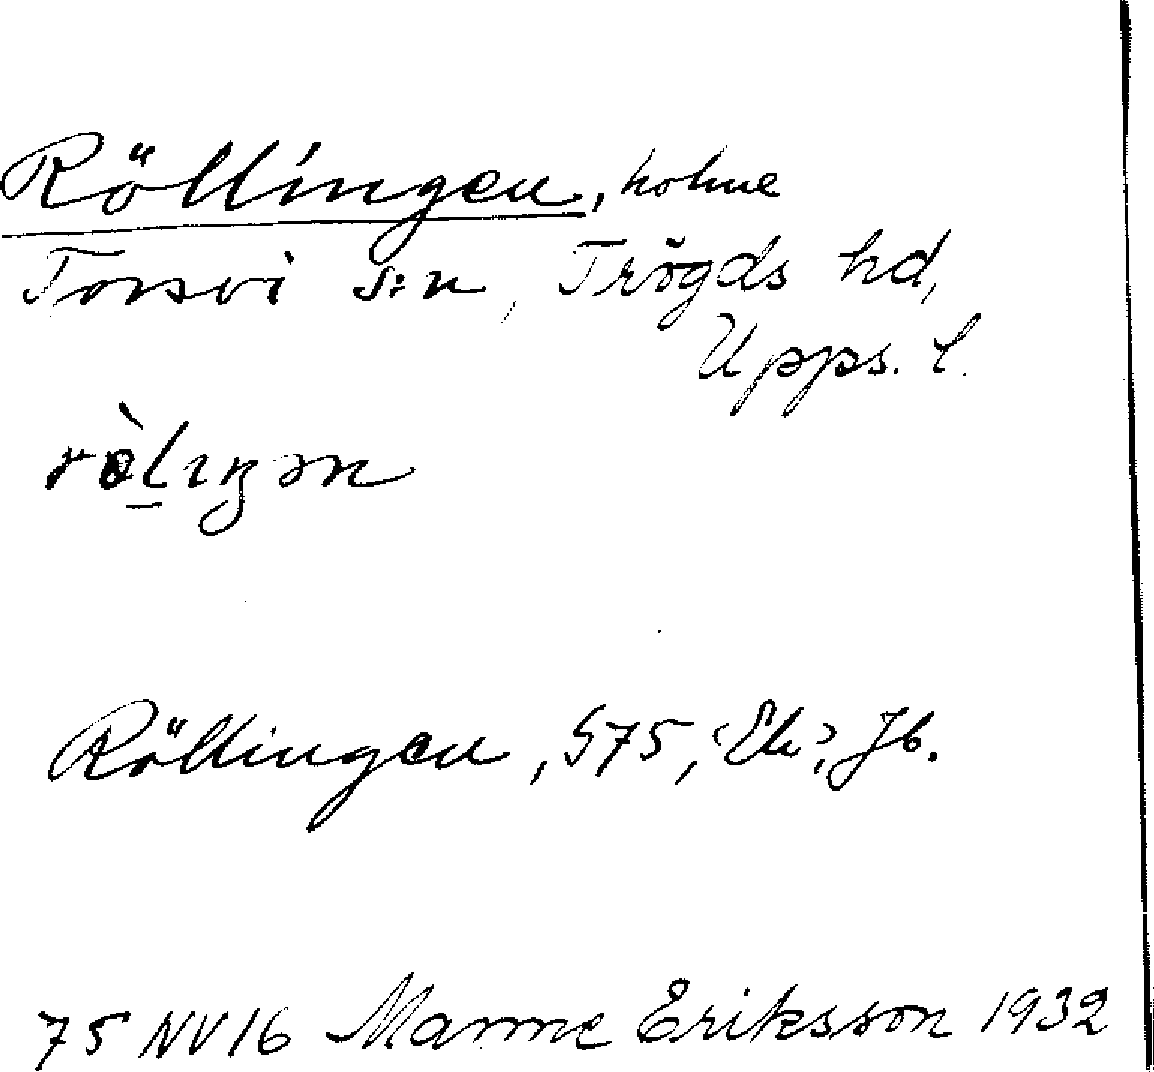 Röllingen, holme
Torsvi s:n, Trögds hd,
Upps. l.
Röllingen, S75, Ek, Jb.
75 NV16 Manne Eriksson 1932